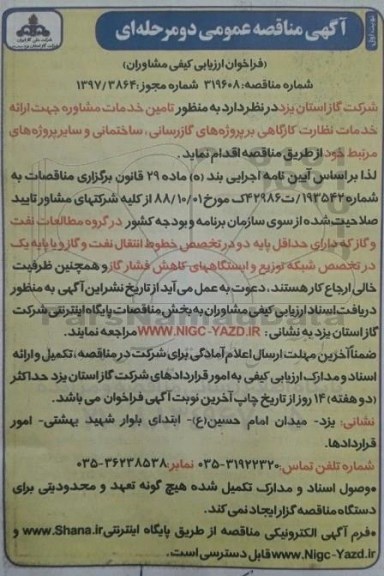 نوبت اول
آگهی مناقصه عمومی دو مرحله‌ای
شرکت ملی گاز ایران
(فراخوان ارزیابی کیفی مشاوران)
شماره مناقصه: ۳۱۹۶۰۸ شماره مجوز: ۱۳۹۷/۳۸۶۴
شرکت گاز استان یزد در نظر دارد به منظور تامین خدمات مشاوره جهت ارائه
خدمات نظارت کارگاهی بر پروژه‌های گازرسانی، ساختمانی و سایر پروژه‌های
مرتبط خود از طریق مناقصه اقدام نماید.
لذا بر اساس آیین نامه اجرایی بند (ه) ماده ۲۹ قانون برگزاری مناقصات به
شماره ۱۹۳۵۴۲/ت۴۲۹۸۶ک مورخ ۸۸/۱۰/۰۱ از کلیه شرکتهای مشاور تایید
صلاحیت شده از سوی سازمان برنامه و بودجه کشور در گروه مطالعات نفت
و گاز که دارای حداقل پایه دو در تخصص خطوط انتقال نفت و گاز و یا پایه یک
در تخصص شبکه توزیع و ایستگاههای کاهش فشار گاز و همچنین ظرفیت
خالی ارجاع کار هستند، دعوت به عمل می‌آید از تاریخ نشر این آگهی به منظور
دریافت اسناد ارزیابی کیفی مشاوران به بخش مناقصات پایگاه اینترنتی شرکت
گاز استان یزد به نشانی: WWW.NIGC-YAZD.IR مراجعه نمایند.
ضمناً آخرین مهلت ارسال اعلام آمادگی برای شرکت در مناقصه، تکمیل و ارائه
اسناد و مدارک ارزیابی کیفی به امور قراردادهای شرکت گاز استان یزد حداکثر
(دو هفته) ۱۴ روز از تاریخ چاپ آخرین نوبت آگهی فراخوان می باشد.
نشانی: یزد- میدان امام حسین(ع)- ابتدای بلوار شهید بهشتی- امور
قراردادها.
شماره تلفن تماس: ۳۱۹۲۲۳۲۰-۰۳۵ نمابر: ۳۶۲۳۸۵۳۸-۰۳۵
•وصول اسناد و مدارک تکمیل شده هیچ گونه تعهد و محدودیتی برای
دستگاه مناقصه گزار ایجاد نمی کند.
•فرم آگهی الکترونیکی مناقصه از طریق پایگاه اینترنتی www.Shana.ir و
www.Nigc-Yazd.ir قابل دسترسی است.